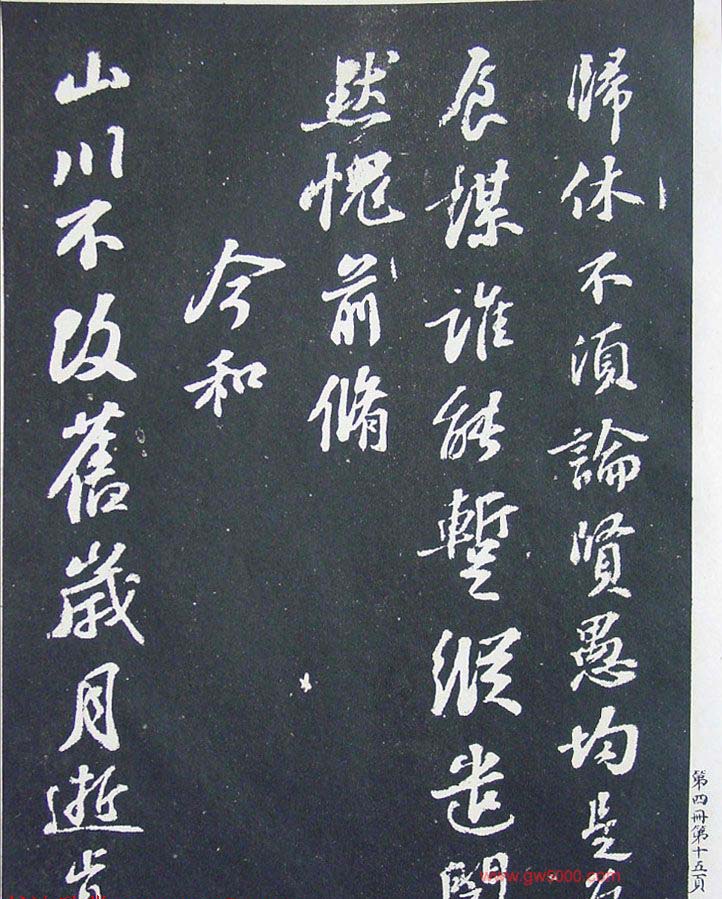 歸休不須論賢愚均是
謀誰能蹔縱
默愧前脩
今和
山川不改舊歲月逝肯
第四冊第十五頁
www.gw5000.com